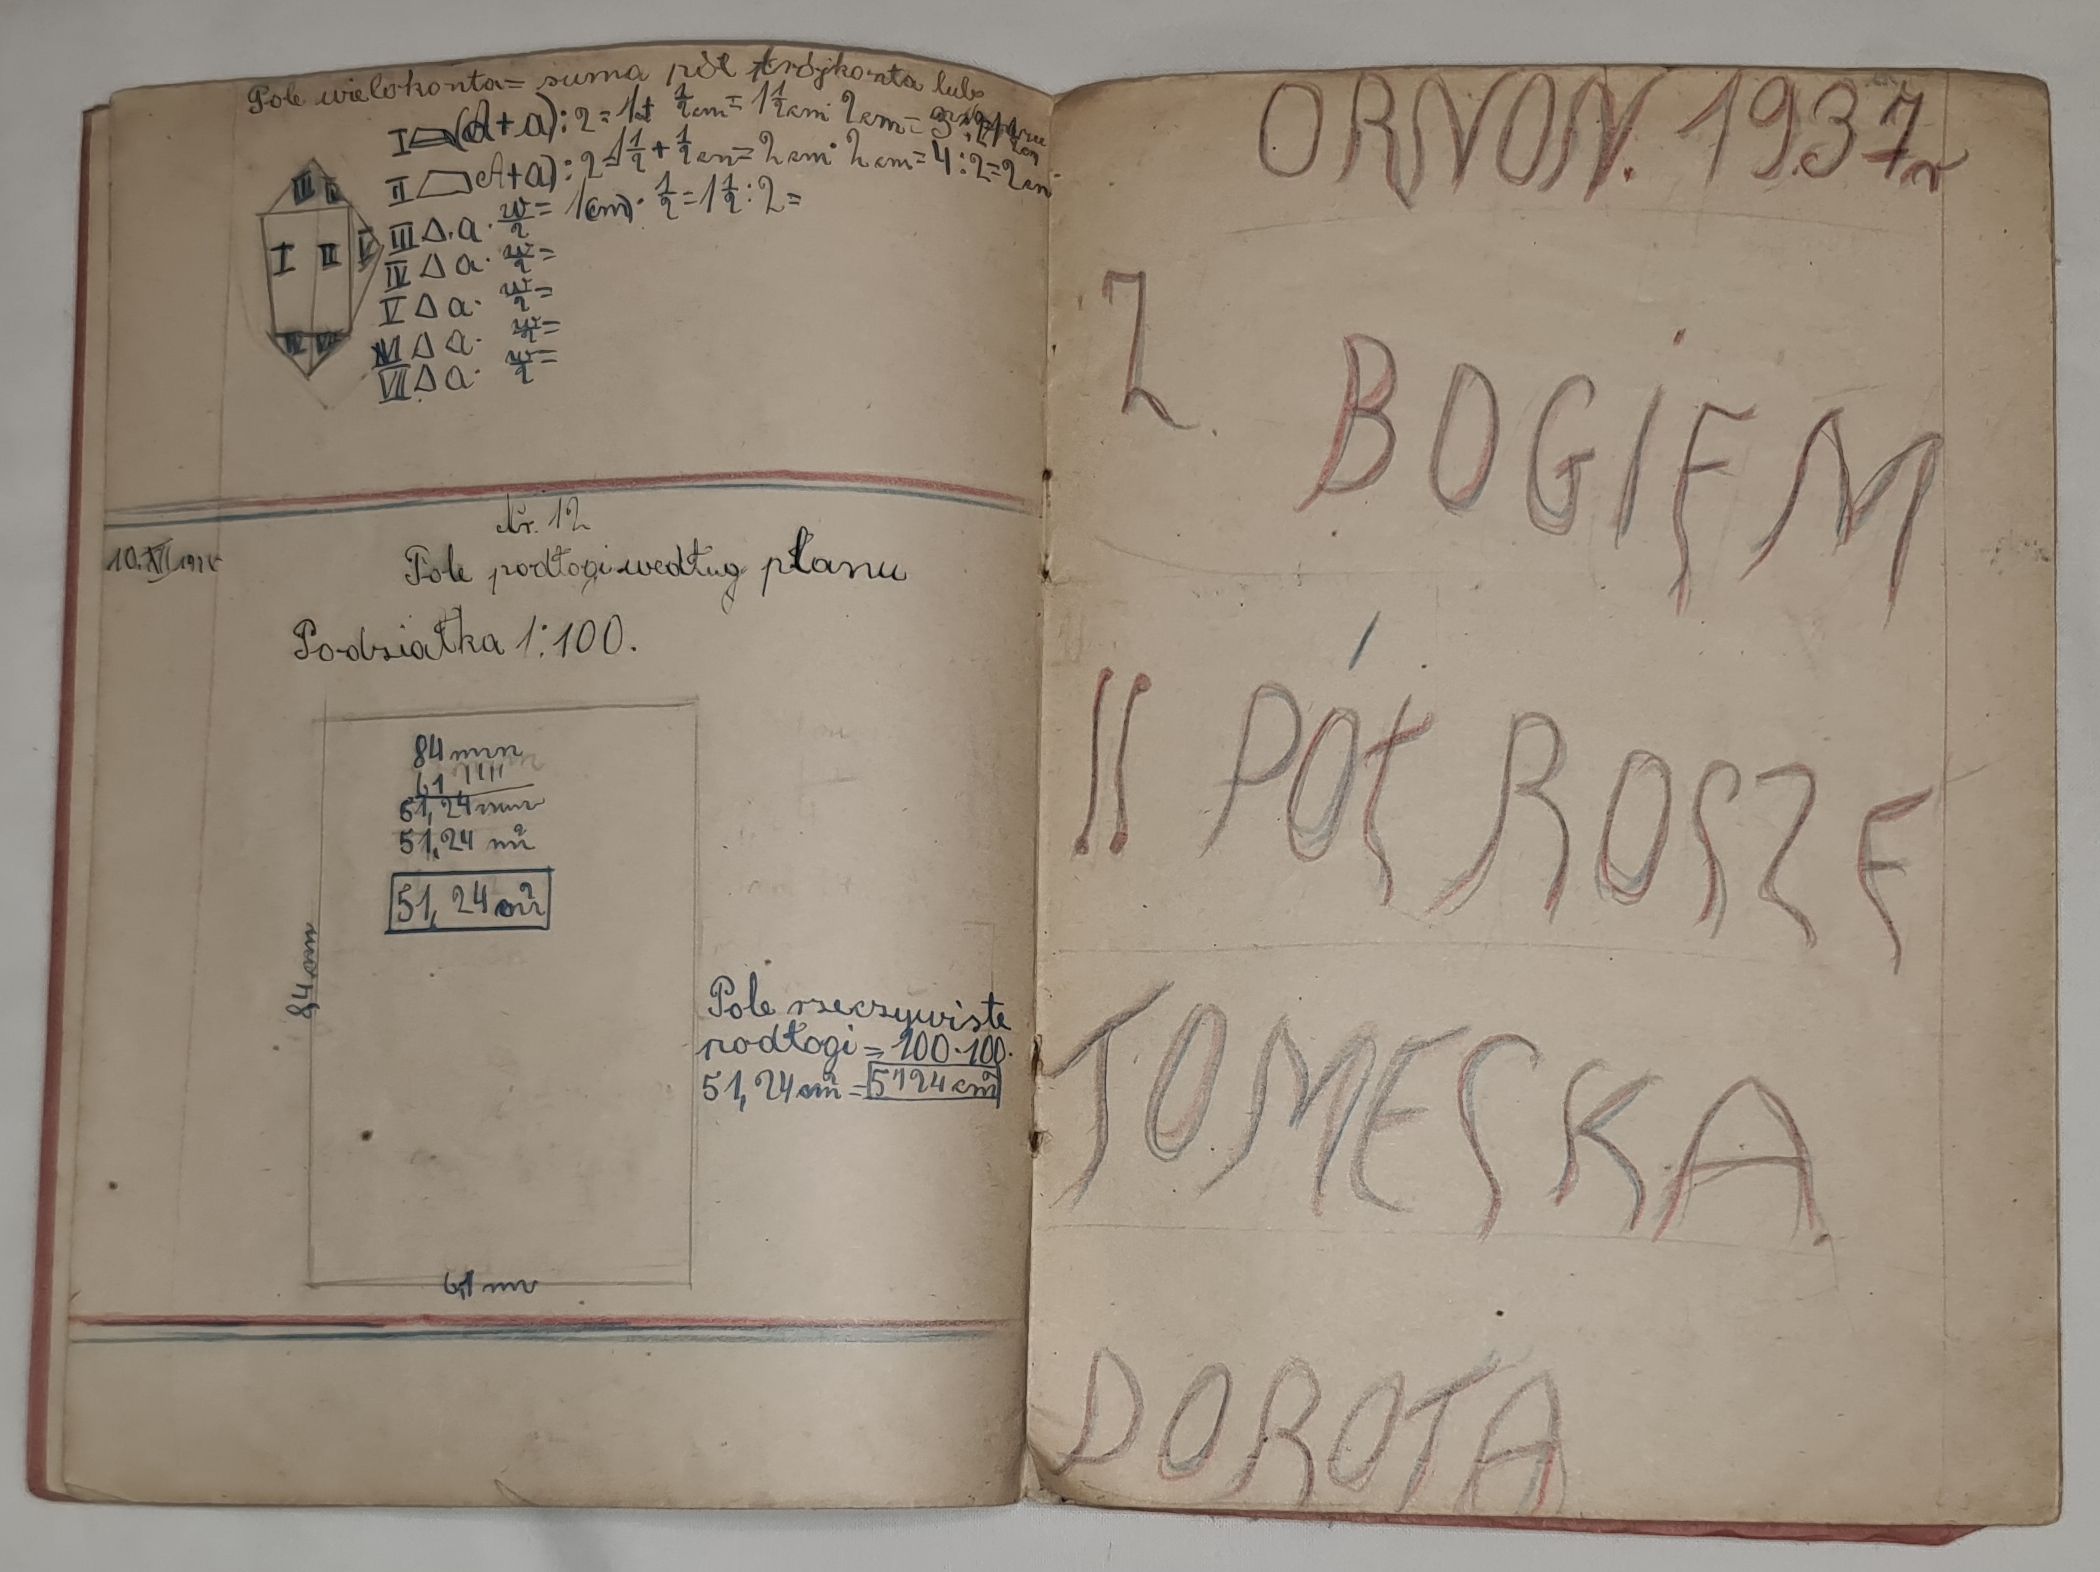 Pole wielokonta= suma pól trójkonta lub
I (A+a):2=1+ 1/2 cm= 1 1/2 cm 2cm= 3:2
II A+a):2=1 1/2+1/2 cm=2cm·2cm=4:2=2cm
III Δ. a. w/2= 1(cm)· 1/2=1 1/2:2=
IV Δ a. w/2=
V Δ a. w/2=
VI Δ a. w/2=
VII Δ a. w/2=
III
I II V
Nr. 12
10. XII
Pole podłogi według planu
Podziałka 1:100.
84 mm
61
51,24 mm
51,24 m²
51,24 m²
84 m
61 m
Pole rzeczywiste
podłogi = 100·100.
51,24 cm² = 5124 cm²
ORNON. 1937r
Z. BOGIEM
II PÓŁROSZE
TOMESKA.
DOROTA